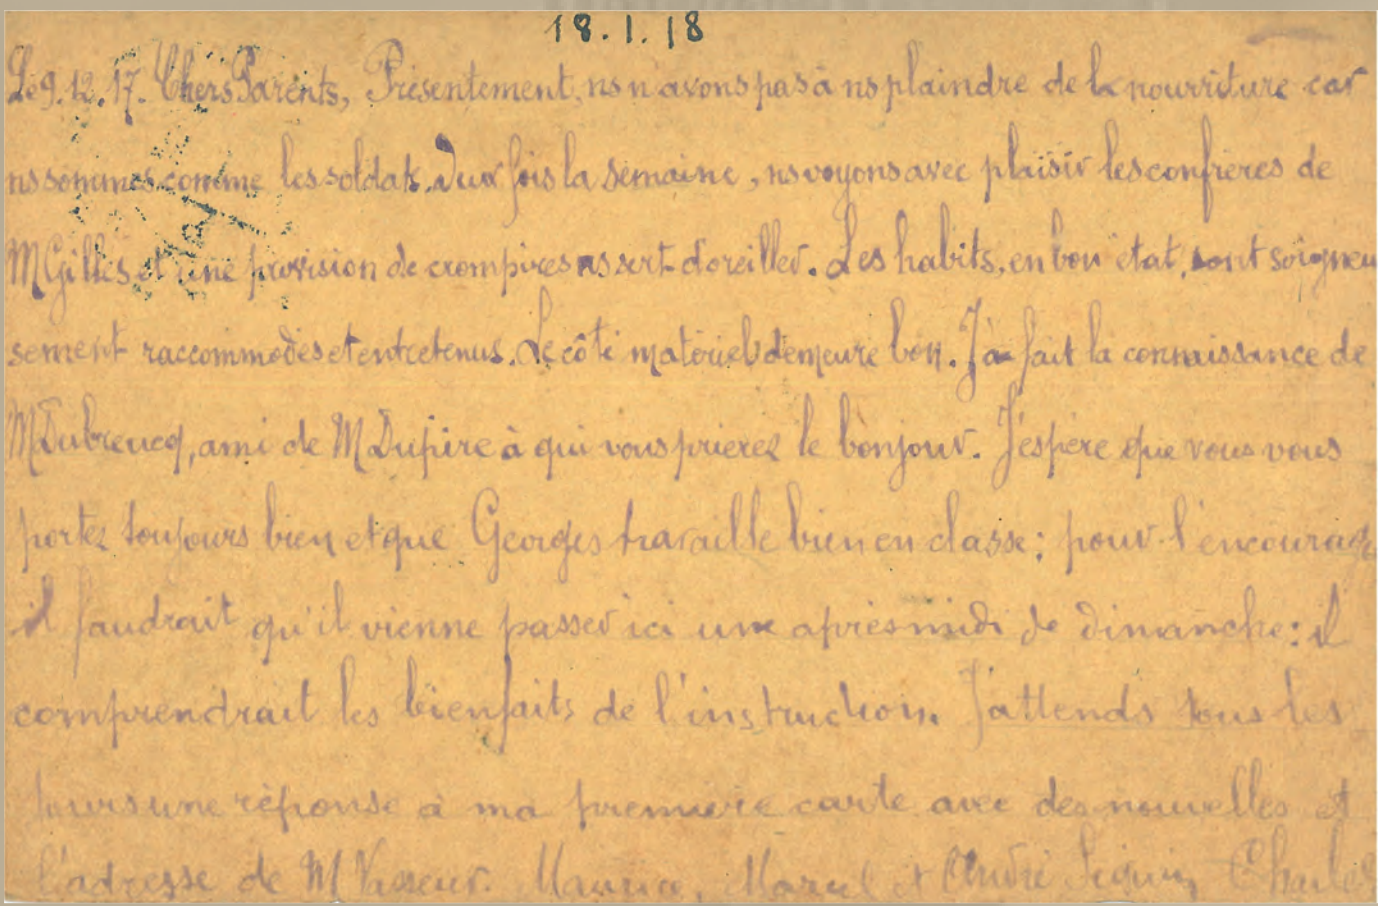 18.1.18
Le 9.12.17. Chers Parents, Présentement, ns n'avons pas à ns plaindre de la nourriture car
ns sommes comme les soldats. Deux fois la semaine, ns voyons avec plaisir les confrères de
M Gilles et une provision de crompires ns sert d'oreiller. Les habits, en bon état, sont soigneu
sement raccommodés et entretenus. Le côté matériel demeure bon. J'ai fait la connaissance de
M Dubreucq, ami de M Dupire à qui vous prierez le bonjour. J'espère que vous vous
portez toujours bien et que Georges travaille bien en classe: pour l'encourager
il faudrait qu'il vienne passer ici une après midi de dimanche: il
comprendrait les bienfaits de l'instruction. J'attends tous les
jours une réponse à ma première carte avec des nouvelles et
l'adresse de M Vasseur. Maurice, Marcel et André Charles